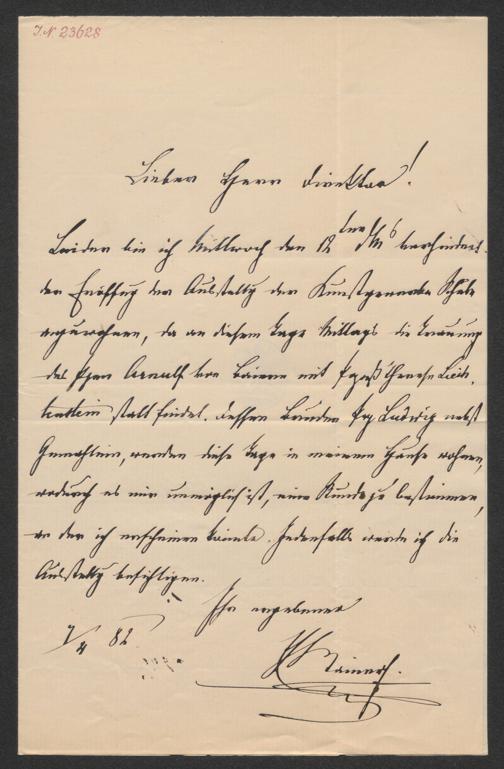 J.N. 23628
Lieber Herr Direktor!
Leider bin ich Mittwoch den 12ten d Mts verhindert
der Eröffng der Ausstellg der Kunstgewerbe Schule
anzuwohnen, da an diesem Tage Mittags die Trauung
des Pzen Arnulf von Baiern mit Pzeß Therese Liech-
tenstein stattfindet. Dessen Bruder Pz Ludwig nebst
Gemahlin, werden diese Tage in meinem Hause wohnen,
wodurch es mir unmöglich ist, eine Stunde zu bestimmen,
an der ich erscheinen könnte. Jedenfalls werde ich die
Ausstellg besichtigen.
Ihr ergebener
7/4 82
EHRainer